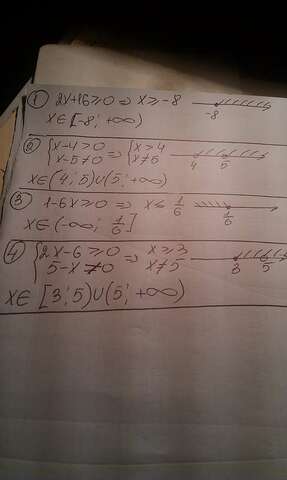 ① 2x+16≥0 ⇒ x≥-8
-8
x∈[-8; +∞)
② {x-4>0 ⇒ {x>4
x-5≠0 x≠5
4 5
x∈(4; 5)∪(5; +∞)
③ 1-6x≥0 ⇒ x≤ 1/6
1/6
x∈(-∞; 1/6]
④ {2x-6≥0 ⇒ x≥3
5-x≠0 x≠5
3 5
x∈ [3; 5)∪(5; +∞)